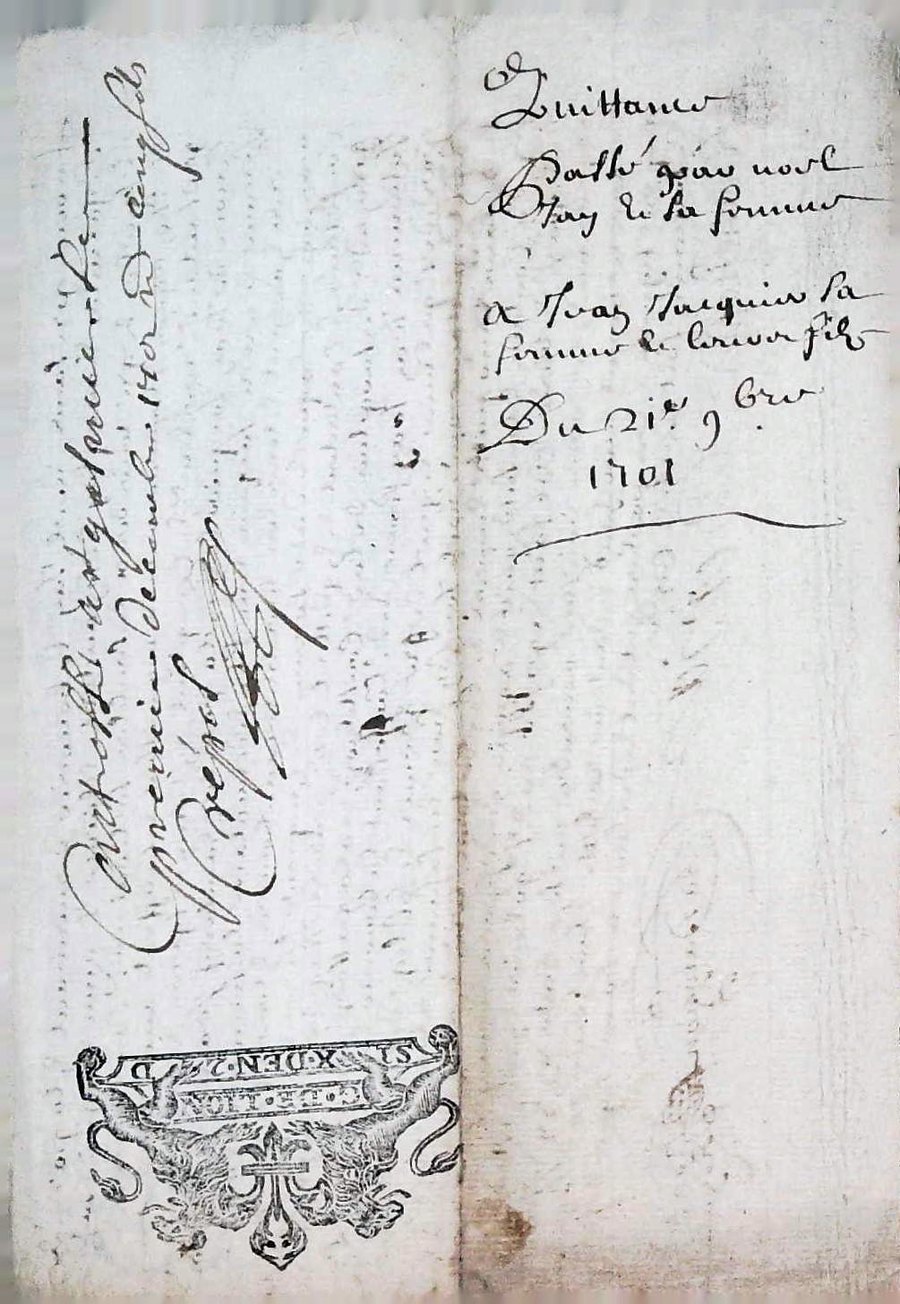 Quittance
Passé par noel
Jay et sa femme
a Jean Jacquier sa
femme et leur fils
Du 21e 9bre
1701
Controllé et
premier decembre 1701 cinq sols
Crépol
SIX·DEN·2 D
G·DE·LION